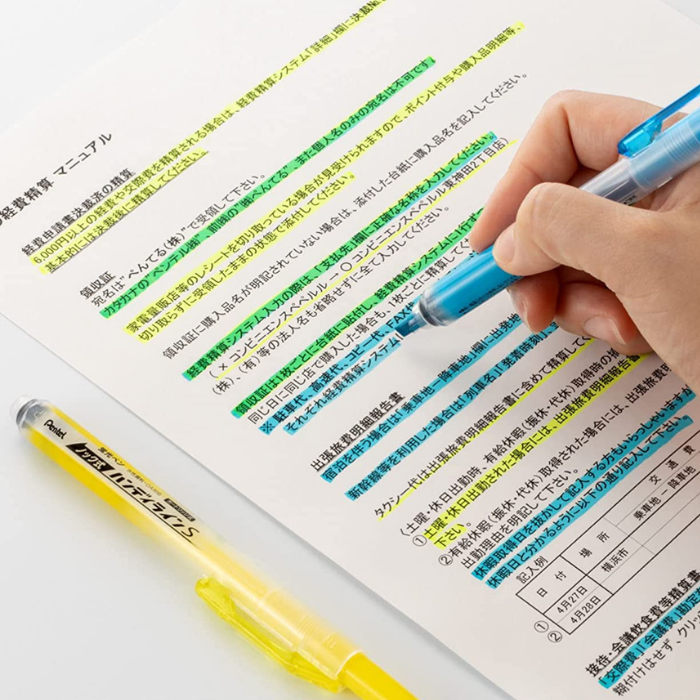 経費精算 マニュアル
経費申請書決裁済の精算
6,000円以上の経費や交際費を精算される場合は、経費精算システム「詳細」欄に決裁
基本的には決裁後に精算してください。
領収証
宛名は"ぺんてる(株)"で受領して下さい。
カタカナの"ペンテル(株)"、前(株)の"(株)ぺんてる"、また個人名のみの宛名は不可です。
家電量販店等のレシートを切り取っている場合が見受けられますので、ポイント付与や購入品明細等、
切り取らずに受領したままの状態で添付してください。
領収証に購入品名が明記されていない場合は、添付した台紙に購入品名を記入してください。
経費精算システム入力の際は、「支払先」欄に正確な名称を入力してください。
(×コンビニエンスペベル→○コンビニエンスペベル東神田2丁目店)
(株)、(有)等の法人名も省略せずに全て入力してください。
領収証は1枚ごとに台紙に貼付し、経費精算システムに1行ず
同じ日に同じ店で購入した場合も、1枚ごとに精算してく
※駐車代、高速代、コピー代、FAX
それぞれ経費精算システム
出張旅費明細報告書
宿泊を伴う場合は「乗車地ー降車地」欄に出発地
新幹線等を利用した場合は「列車名」「発着時
タクシー代は出張旅費明細報告書に含めて精算して
(土曜・休日出勤時、有給休暇(振休・代休)取得時の
①土曜・休日出勤された場合には、出張旅費明細報告
下さい。
②有給休暇(振休・代休)取得された場合には、出張旅費明
出勤理由を明記して下さい。
休暇取得日を抜かして記入する方もいらっしゃいます
休暇日と分かるように以下の通り記入して下さい。
記入例
日 付 場 所 交 通 費
乗車地ー降車地
① 4月27日 横浜市
② 4月28日
接待・会議飲食費等精算書
「交際費」「会議費」勘定
糊付けはせず、クリッ
Pentel
蛍光ペン
ノック式
ハンディラインS